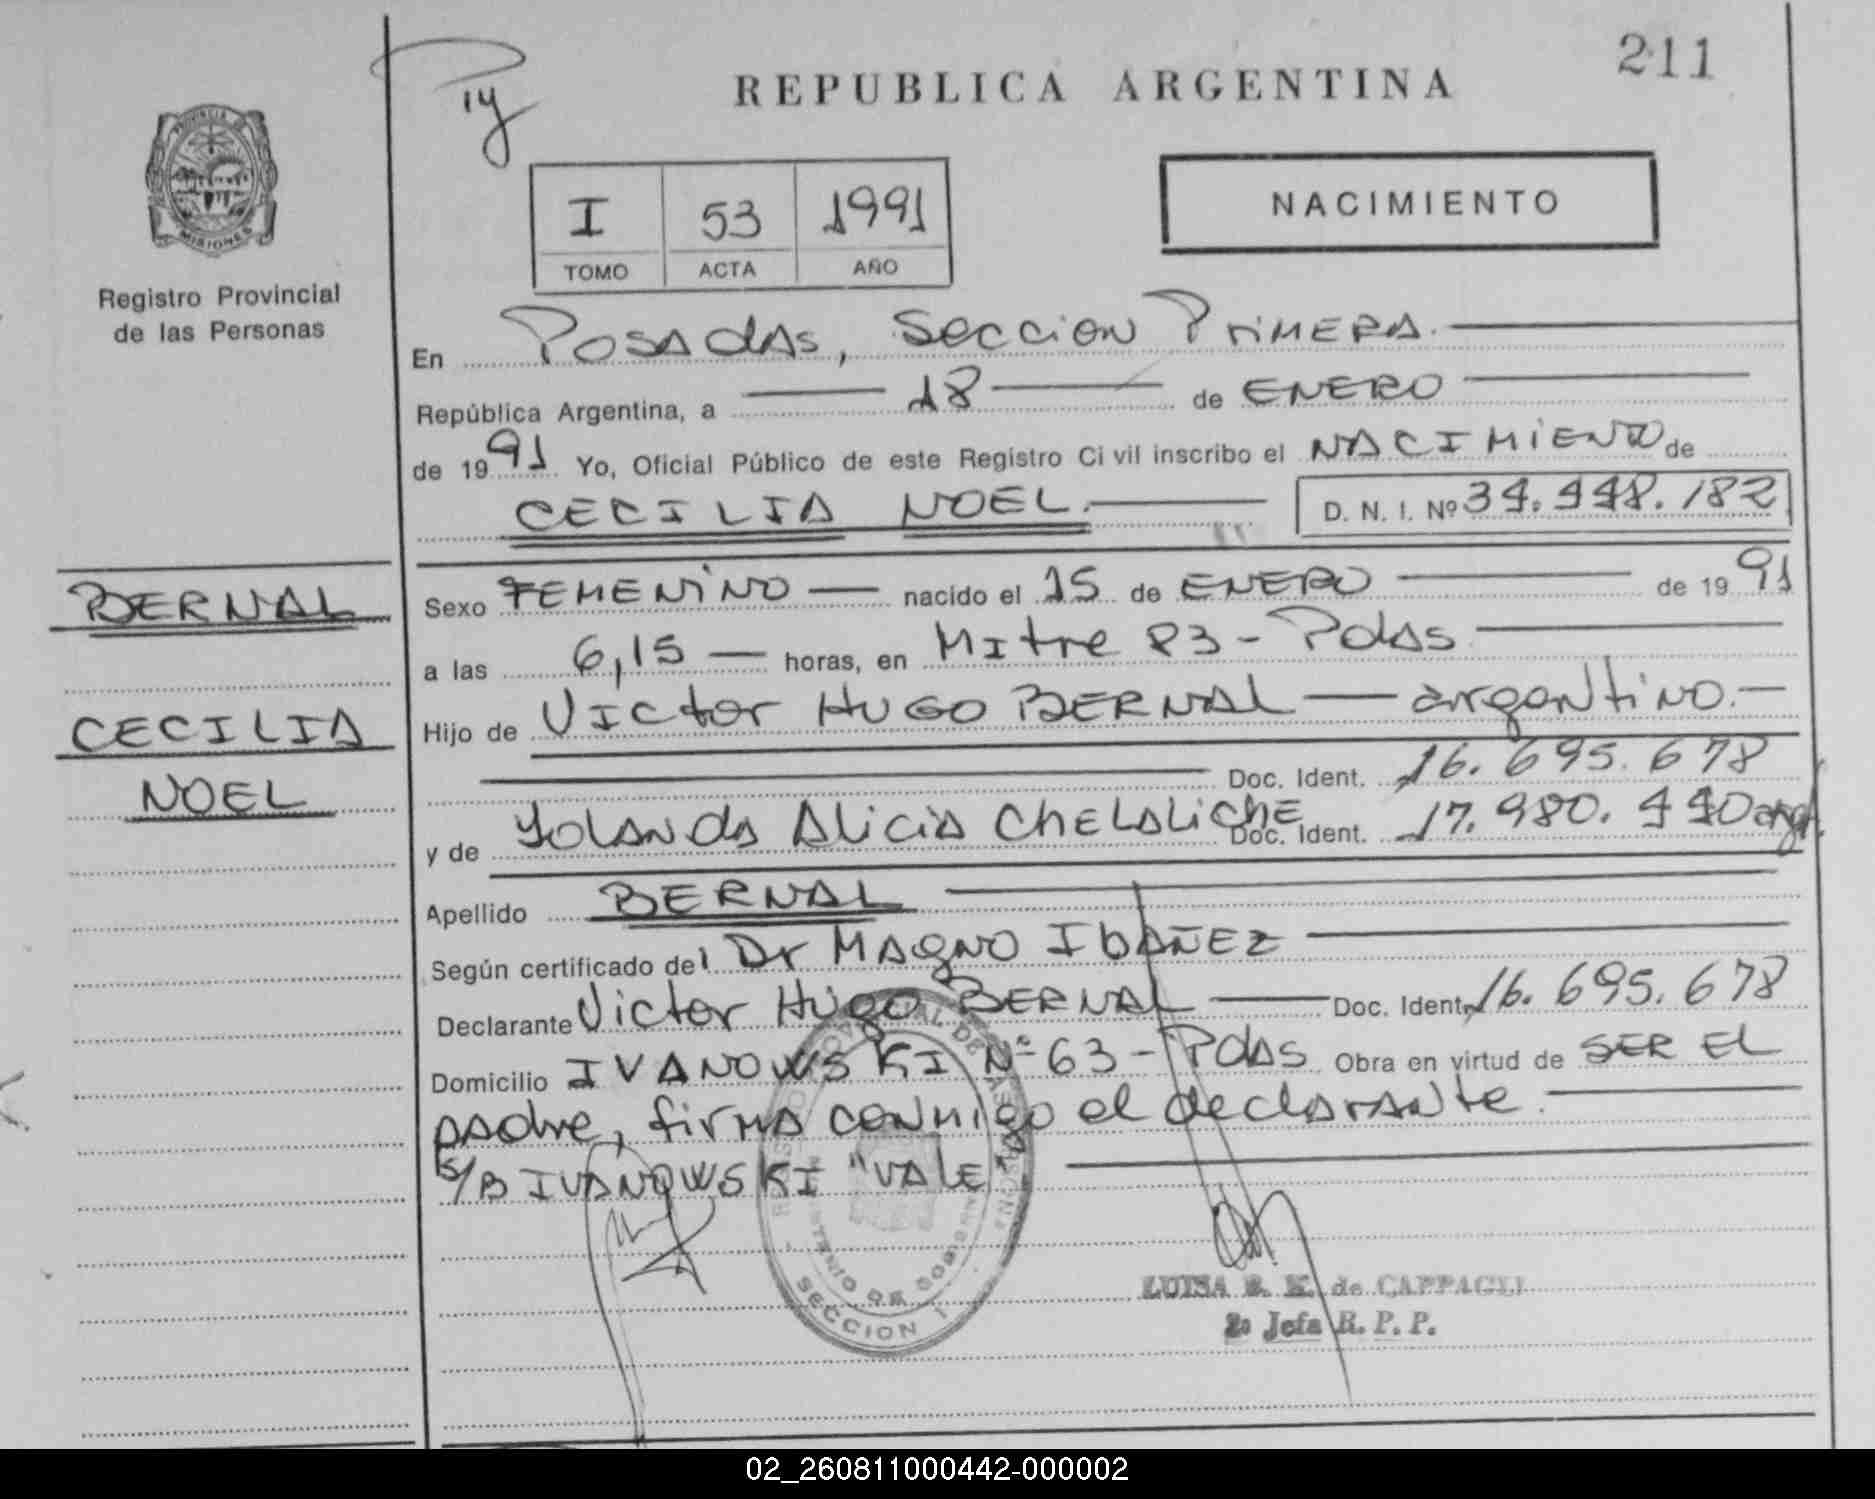 211
REPUBLICA ARGENTINA
PROVINCIA DE
MISIONES
Registro Provincial
de las Personas
I 53 1991
TOMO ACTA AÑO
NACIMIENTO
En POSADAS, SECCION PRIMERA.
República Argentina, a 18 de ENERO
de 1991 Yo, Oficial Público de este Registro Civil inscribo el NACIMIENTO de
CECILIA NOEL. D. N. I. Nº 34.448.182
BERNAL
CECILIA
NOEL
Sexo FEMENINO nacido el 15 de ENERO de 1991
a las 6,15 horas, en Mitre 83 - Pdas.
Hijo de Victor HUGO BERNAL argentino.
Doc. Ident. 16.695.678
y de Yolanda Alicia Chelaliche Doc. Ident. 17.980.440 arg.
Apellido BERNAL
Según certificado del Dr MAGNO IBAÑEZ
Declarante Victor Hugo BERNAL Doc. Ident. 16.695.678
Domicilio IVANOWSKI Nº 63 - Pdas Obra en virtud de SER EL
padre, firma conmigo el declarante.
s/B IVANOWSKI "VALE"
MINISTERIO DE GOBIERNO
SECCION 1
LUISA B. K. de CAPPAGLI
2º Jefa R. P. P.
02_260811000442-000002